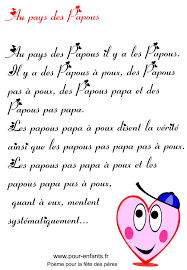 Au pays des Papous
Au pays des Papous il y a les Papous.
Il y a des Papous à poux, des Papous
pas à poux, des Papous papa et des
Papous pas papa.
Les papous papa à poux disent la vérité
ainsi que les papous pas papa pas à poux.
Les papous papa pas à poux et les
papous pas papa à poux,
quant à eux, mentent
systématiquement...
www.pour-enfants.fr
Poème pour la fête des pères